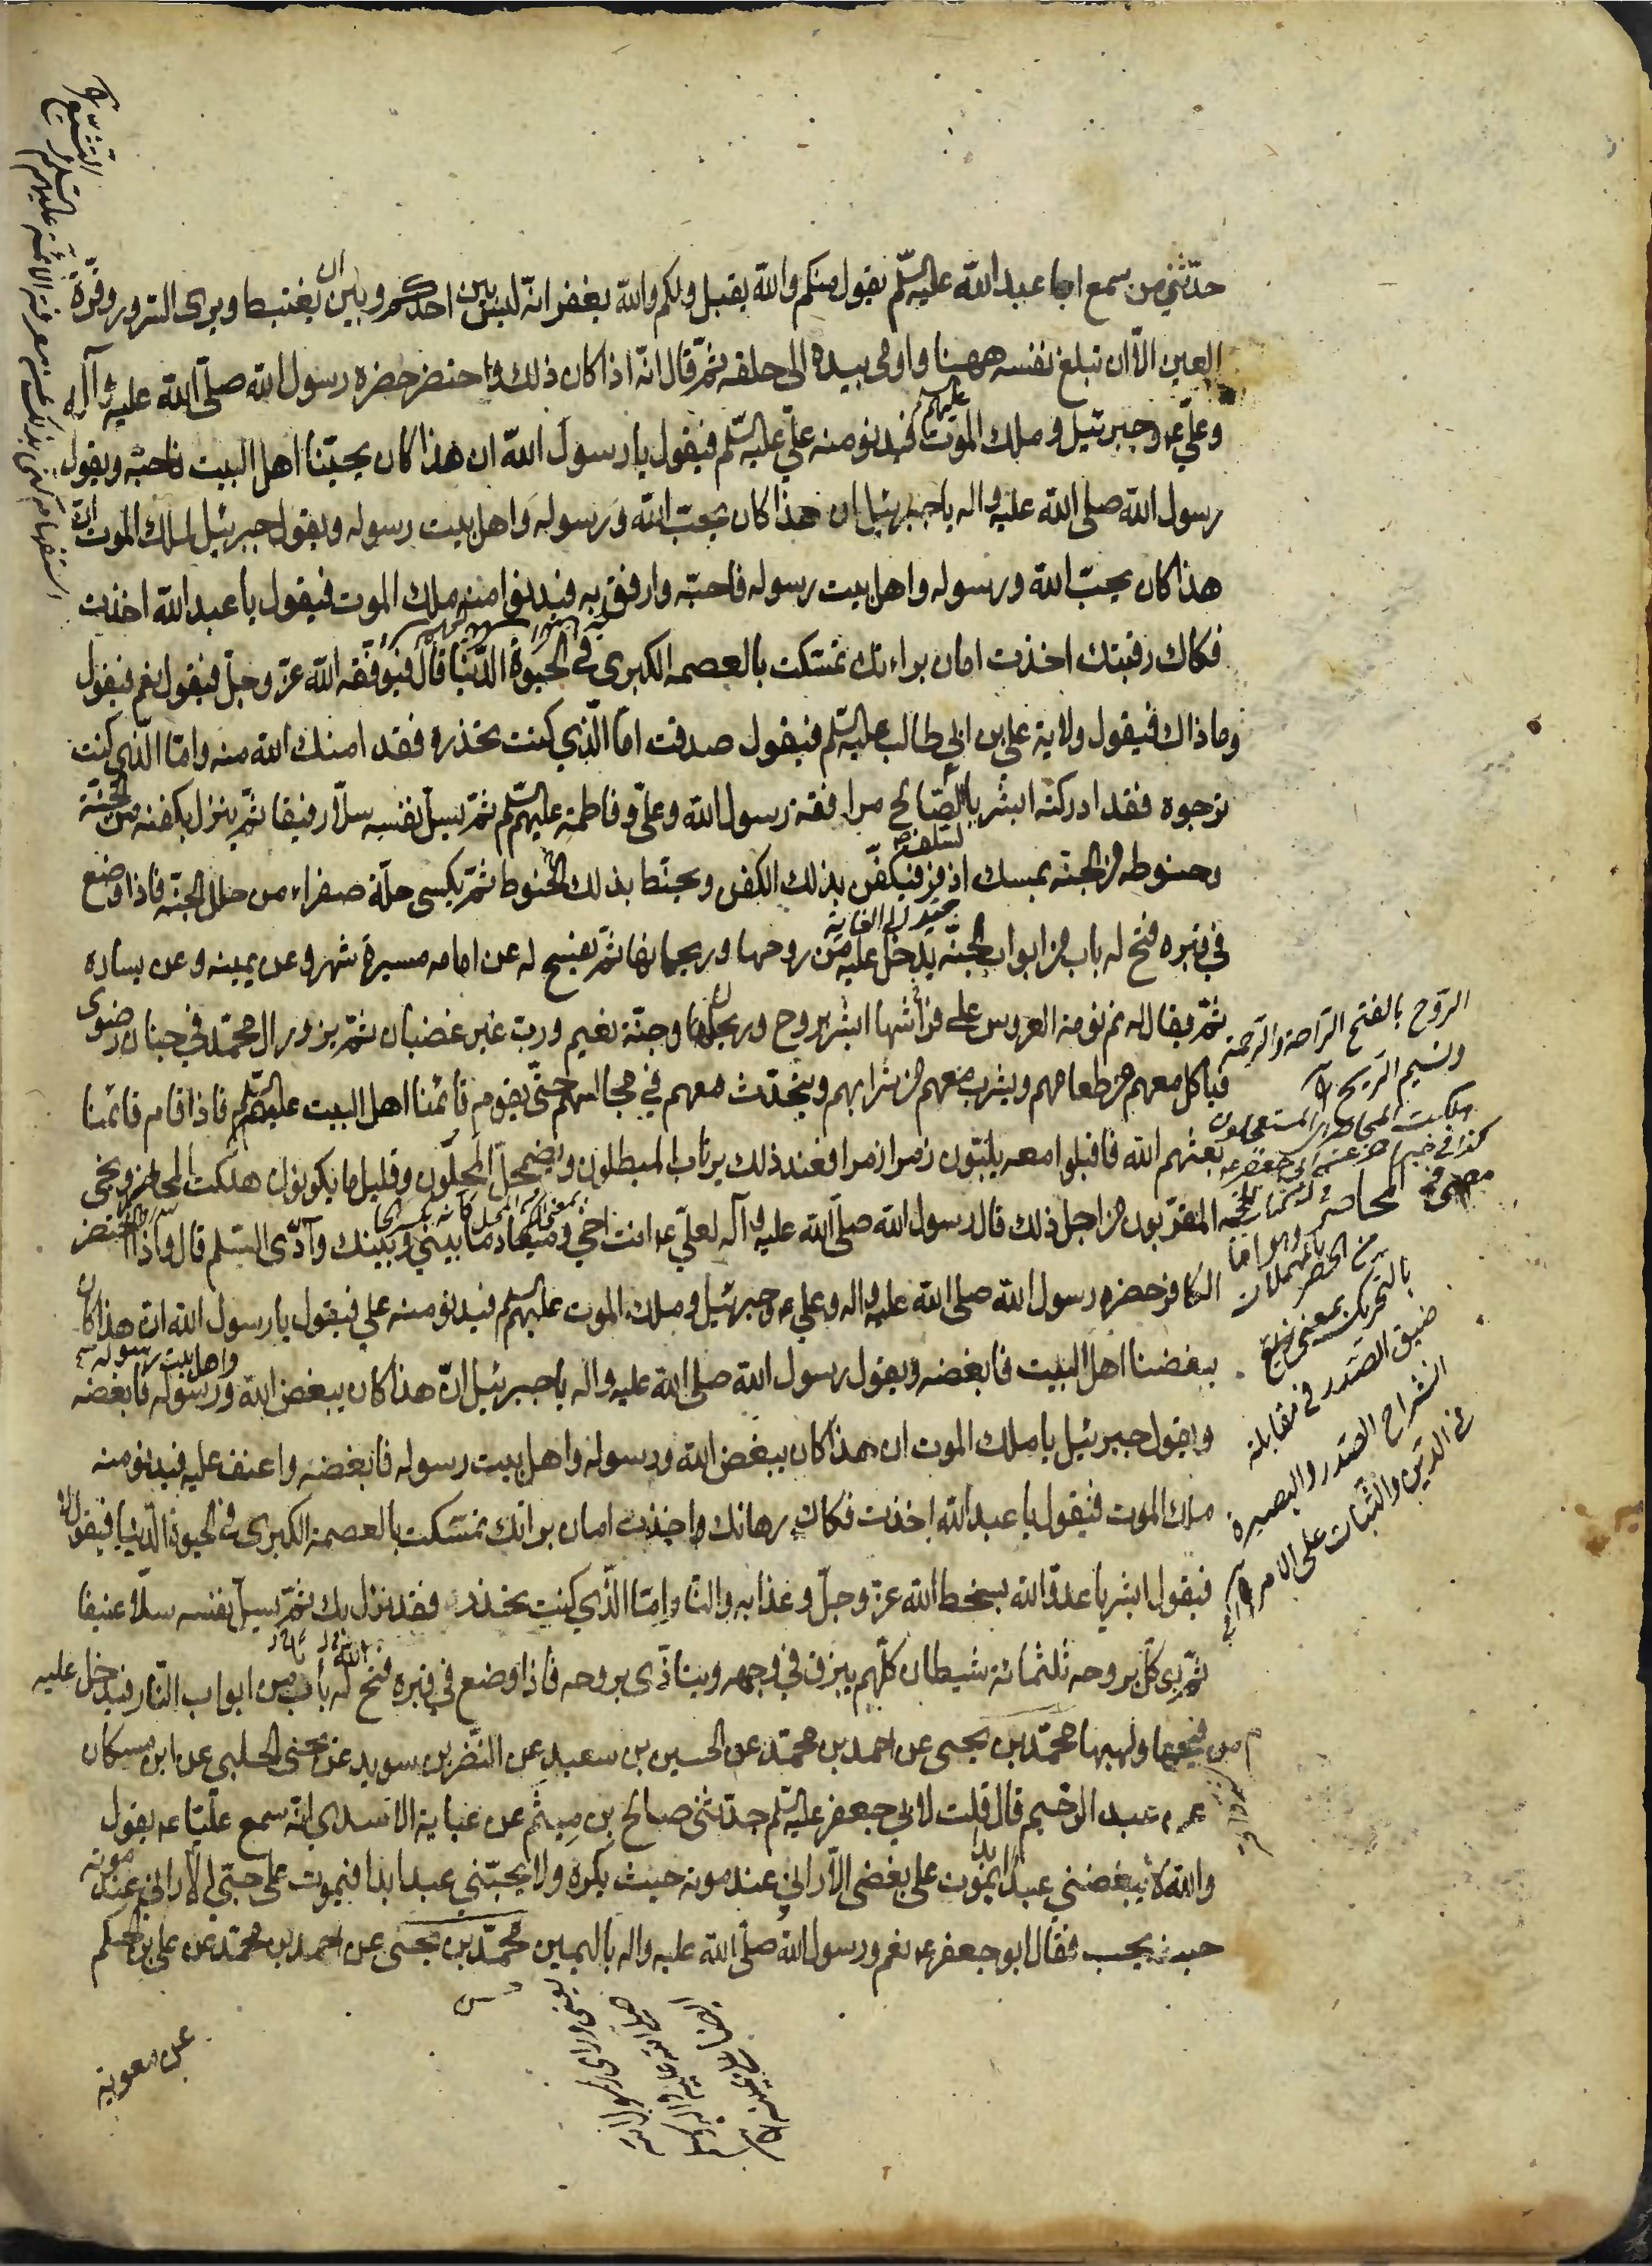 حدّثني من سمع ابا عبد الله عليه السّلم يقول منكم والله يقبل ولكم والله يغفر انّه ليس بين احدكم وبين ان يغتبط ويرى السرور وقرّة
العين الّا ان تبلغ نفسه ههنا واومى بيده الى حلقه ثمّ قال انّه اذا كان ذلك واحتضر حضره رسول الله صلّى الله عليه وآله
وعليّ عه وجبرئيل وملك الموت عليهم فيدنو منه عليّ عليه السّلم فيقول يا رسول الله ان هذا كان يحبّنا اهل البيت فاحبّه ويقول
رسول الله صلى الله عليه واله يا جبرئيل ان هذا كان يحبّ الله ورسوله واهل بيت رسوله ويقول جبرئيل لملك الموت انّ
هذا كان يحبّ الله ورسوله واهل بيت رسوله فاحبّه وارفق به فيدنوا منه ملك الموت فيقول يا عبد الله اخذت
فكاك رقبتك اخذت امان براءتك تمسّكت بالعصمه الكبرى في الحيوة الدّنيا قال فيوفّقه الله عزّ وجلّ فيقول نعم فيقول
وما ذاك فيقول ولاية علي بن ابي طالب عليه السّلم فيقول صدقت امّا الّذي كنت تحذره فقد امنك الله منه وامّا الّذي كنت
ترجوه فقد ادركته ابشر بالسّلف الصّالح مرافقة رسول الله وعليّ وفاطمة عليهم السّلم ثمّ يسلّ نفسه سلّا رفيقا ثمّ ينزل بكفنه من الجنّة
وحنوطه من الجنّة بمسك اذفر فيكفّن بذلك الكفن ويحنّط بذلك الحنوط ثمّ يكسى حلّة صفراء من حلل الجنّة فاذا وضع
في قبره فتح له باب من ابواب الجنّة يدخل عليه من روحها وريحانها ثمّ يفسح له عن امامه مسيرة شهر وعن يمينه وعن يساره
ثمّ يقال له نم نومة العروس على فراشها ابشر بروح وريحان وجنّة نعيم وربّ غير غضبان ثمّ يزور ال محمّد في جنان رضوى
فياكل معهم من طعامهم ويشرب معهم من شرابهم ويتحدّث معهم في مجالسهم حتّى يقوم قائمنا اهل البيت عليهم السّلم فاذا قام قائمنا
بعثهم الله فاقبلوا معه يلبّون زمرا زمرا فعند ذلك يرتاب المبطلون ويضمحلّ المحلّون وقليل ما يكونون هلكت المحاضير ونجى
المقرّبون من اجل ذلك قال رسول الله صلّى الله عليه وآله لعليّ عه انت اخي وميعاد ما بيني وبينك وادي السّلم قال واذا احتضر
الكافر حضره رسول الله صلى الله عليه واله وعلي عه وجبرئيل وملك الموت عليهم السّلم فيدنو منه علي فيقول يا رسول الله انّ هذا كان
يبغضنا اهل البيت فابغضه ويقول رسول الله صلى الله عليه واله يا جبرئيل انّ هذا كان يبغض الله ورسوله واهل بيت رسوله فابغضه
ويقول جبرئيل يا ملك الموت ان هذا كان يبغض الله ورسوله واهل بيت رسوله فابغضه واعنف عليه فيدنو منه
ملك الموت فيقول يا عبد الله اخذت فكاك رهانك واخذت امان براتك تمسّكت بالعصمة الكبرى في الحيوة الدّنيا فيقول لا
فيقول ابشر يا عدوّ الله بسخط الله عزّ وجلّ وعذابه والنّار وامّا الّذي كنت تحذر فقد نزل بك ثمّ يسلّ نفسه سلّا عنيفا
ثمّ يوكّل بروحه ثلثمائة شيطان كلّهم يبزق في وجهه ويتاذّى بروحه فاذا وضع في قبره فتح له باب من ابواب النّار فيدخل عليه
من فيحها ولهبها محمّد بن يحيى عن احمد بن محمّد عن الحسين بن سعيد عن النّضر بن سويد عن يحيى الحلبي عن ابن مسكان
عن عبد الرّحيم قال قلت لابي جعفر عليه السّلم حدّثني صالح بن ميثم عن عباية الاسدي انّه سمع عليّا عه يقول
والله لا يبغضني عبد ابدا يموت على بغضي الّا راني عند موته حيث يكره ولا يحبّني عبد ابدا فيموت على حبّي الّا راني عند موته
حيث يحب فقال ابو جعفر عه نعم ورسول الله صلّى الله عليه واله باليمين محمّد بن يحيى عن احمد بن محمّد عن علي بن الحكم
عن معوية
الرّوح بالفتح الرّاحة والرّحمة
ونسيم الرّيح
هلكت المحاضير المستعجلون
من الحصر
بالتحريك بمعنى
ضيق الصّدر في مقابلة
انشراح الصّدر والبصيرة
في الدّين والثّبات على الامر
يعني وراى رسول الله
صلى الله عليه واله
ايضا عن يمينه